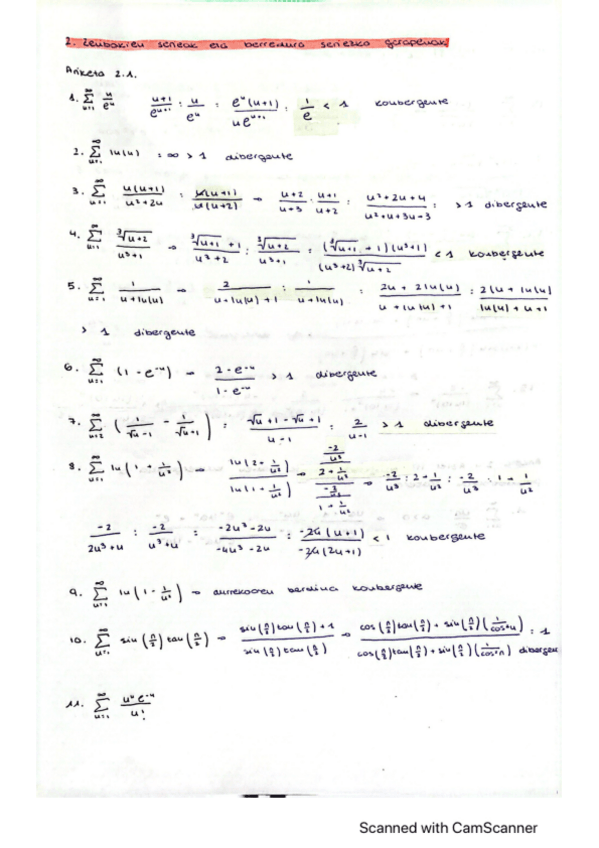 2. Zenbakien serieak eta berretura seriezko garapenak
Ariketa 2.1.
1. ∑_{n=1}^{∞} n/e^n (n+1)/e^{n+1} : n/e^n = e^n(n+1)/(n e^{n+1}) = 1/e < 1 konbergente
2. ∑_{n=1}^{∞} ln(n) = ∞ > 1 dibergente
3. ∑_{n=1}^{∞} n(n+1)/(n²+2n) = n(n+1)/(n(n+2)) → (n+2)/(n+3) : (n+1)/(n+2) = (n²+2n+4)/(n²+n+3n+3) = > 1 dibergente
4. ∑_{n=1}^{∞} ∛(n+2)/(n³+1) → (∛(n+1) + 1)/(n³+2) : ∛(n+2)/(n³+1) = (∛(n+1) + 1)(n³+1)/((n³+2)∛(n+2)) < 1 konbergente
5. ∑_{n=1}^{∞} 1/(n+ln(n)) → 2/(n+ln(n)+1) : 1/(n+ln(n)) = (2n + 2ln(n))/(n + ln(n) + 1) = 2(n + ln(n))/(ln(n) + n + 1)
> 1 dibergente
6. ∑_{n=1}^{∞} (1 - e^{-n}) → (2 - e^{-n})/(1 - e^{-n}) > 1 dibergente
7. ∑_{n=2}^{∞} (1/(√n - 1) - 1/(√n + 1)) = (√n + 1 - √n + 1)/(n - 1) = 2/(n-1) > 1 dibergente
8. ∑_{n=1}^{∞} ln(1 + 1/n²) → ln(2 + 1/n²)/ln(1 + 1/n²) → → -2/n³ : 2 + 1/n² : -2/n³ : 1 + 1/n²
-2/(2n³+n) : -2/(n³+n) = (-2n³-2n)/(-4n³-2n) = -2n(n+1)/(-2n(2n+1)) < 1 konbergente
9. ∑_{n=1}^{∞} ln(1 - 1/n²) → aurrekoaren berdina konbergente
10. ∑_{n=1}^{∞} sin(π/n) tan(π/n) → = 1 dibergen
11. ∑_{n=1}^{∞} n^n e^{-n}/n!
Scanned with CamScanner